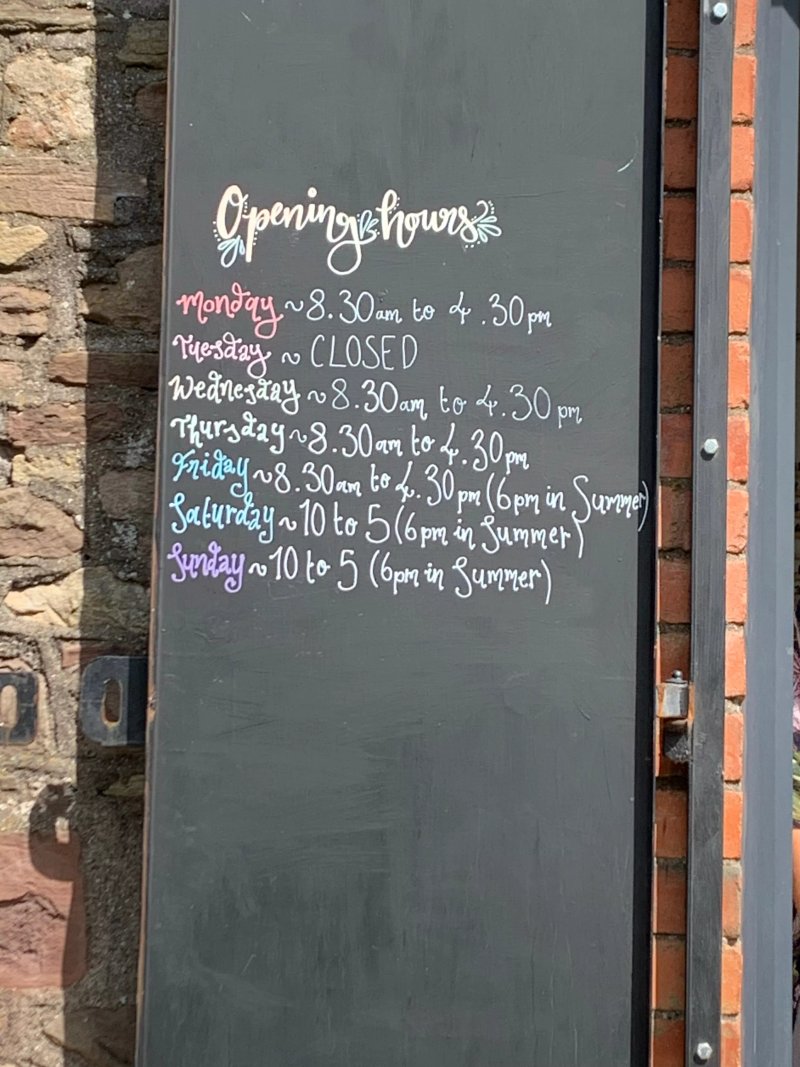 Opening hours
Monday ~ 8.30am to 4.30pm
Tuesday ~ CLOSED
Wednesday ~ 8.30am to 4.30pm
Thursday ~ 8.30am to 4.30pm
Friday ~ 8.30am to 4.30pm (6pm in Summer)
Saturday ~ 10 to 5 (6pm in Summer)
Sunday ~ 10 to 5 (6pm in Summer)